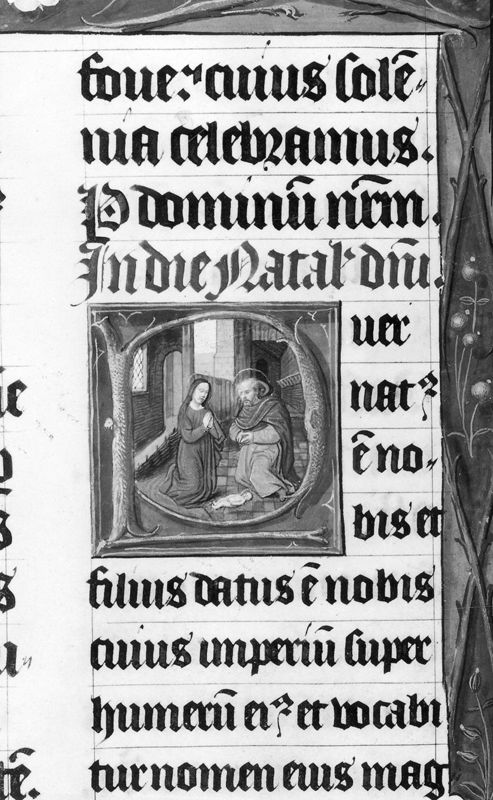 foueꝛ cuius solē-
nia celebramus.
P dominū nr̄m.
In die Natal' dn̄i.
P uer
natꝰ
ē no-
bis et
filius datus ē nobis
cuius imperiū super
humerū eiꝰ et vocabi
tur nomen eius mag